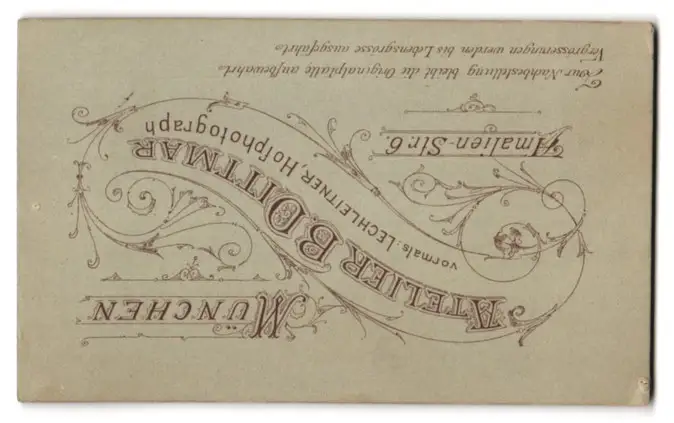 MÜNCHEN
ATELIER B. DITTMAR
vormals: LECHLEITNER, Hofphotograph
Amalien-Str. 6.
Für Nachbestellung bleibt die Originalplatte aufbewahrt.
Vergrösserungen werden bis Lebensgrösse ausgeführt.